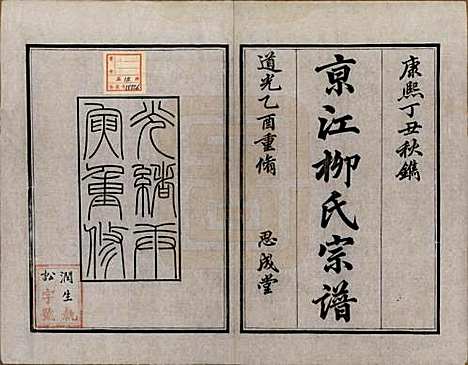 康熙丁丑秋鐫
京江柳氏宗譜
道光乙酉重脩
思成堂
光緒
寅重修
潤生執
松字號